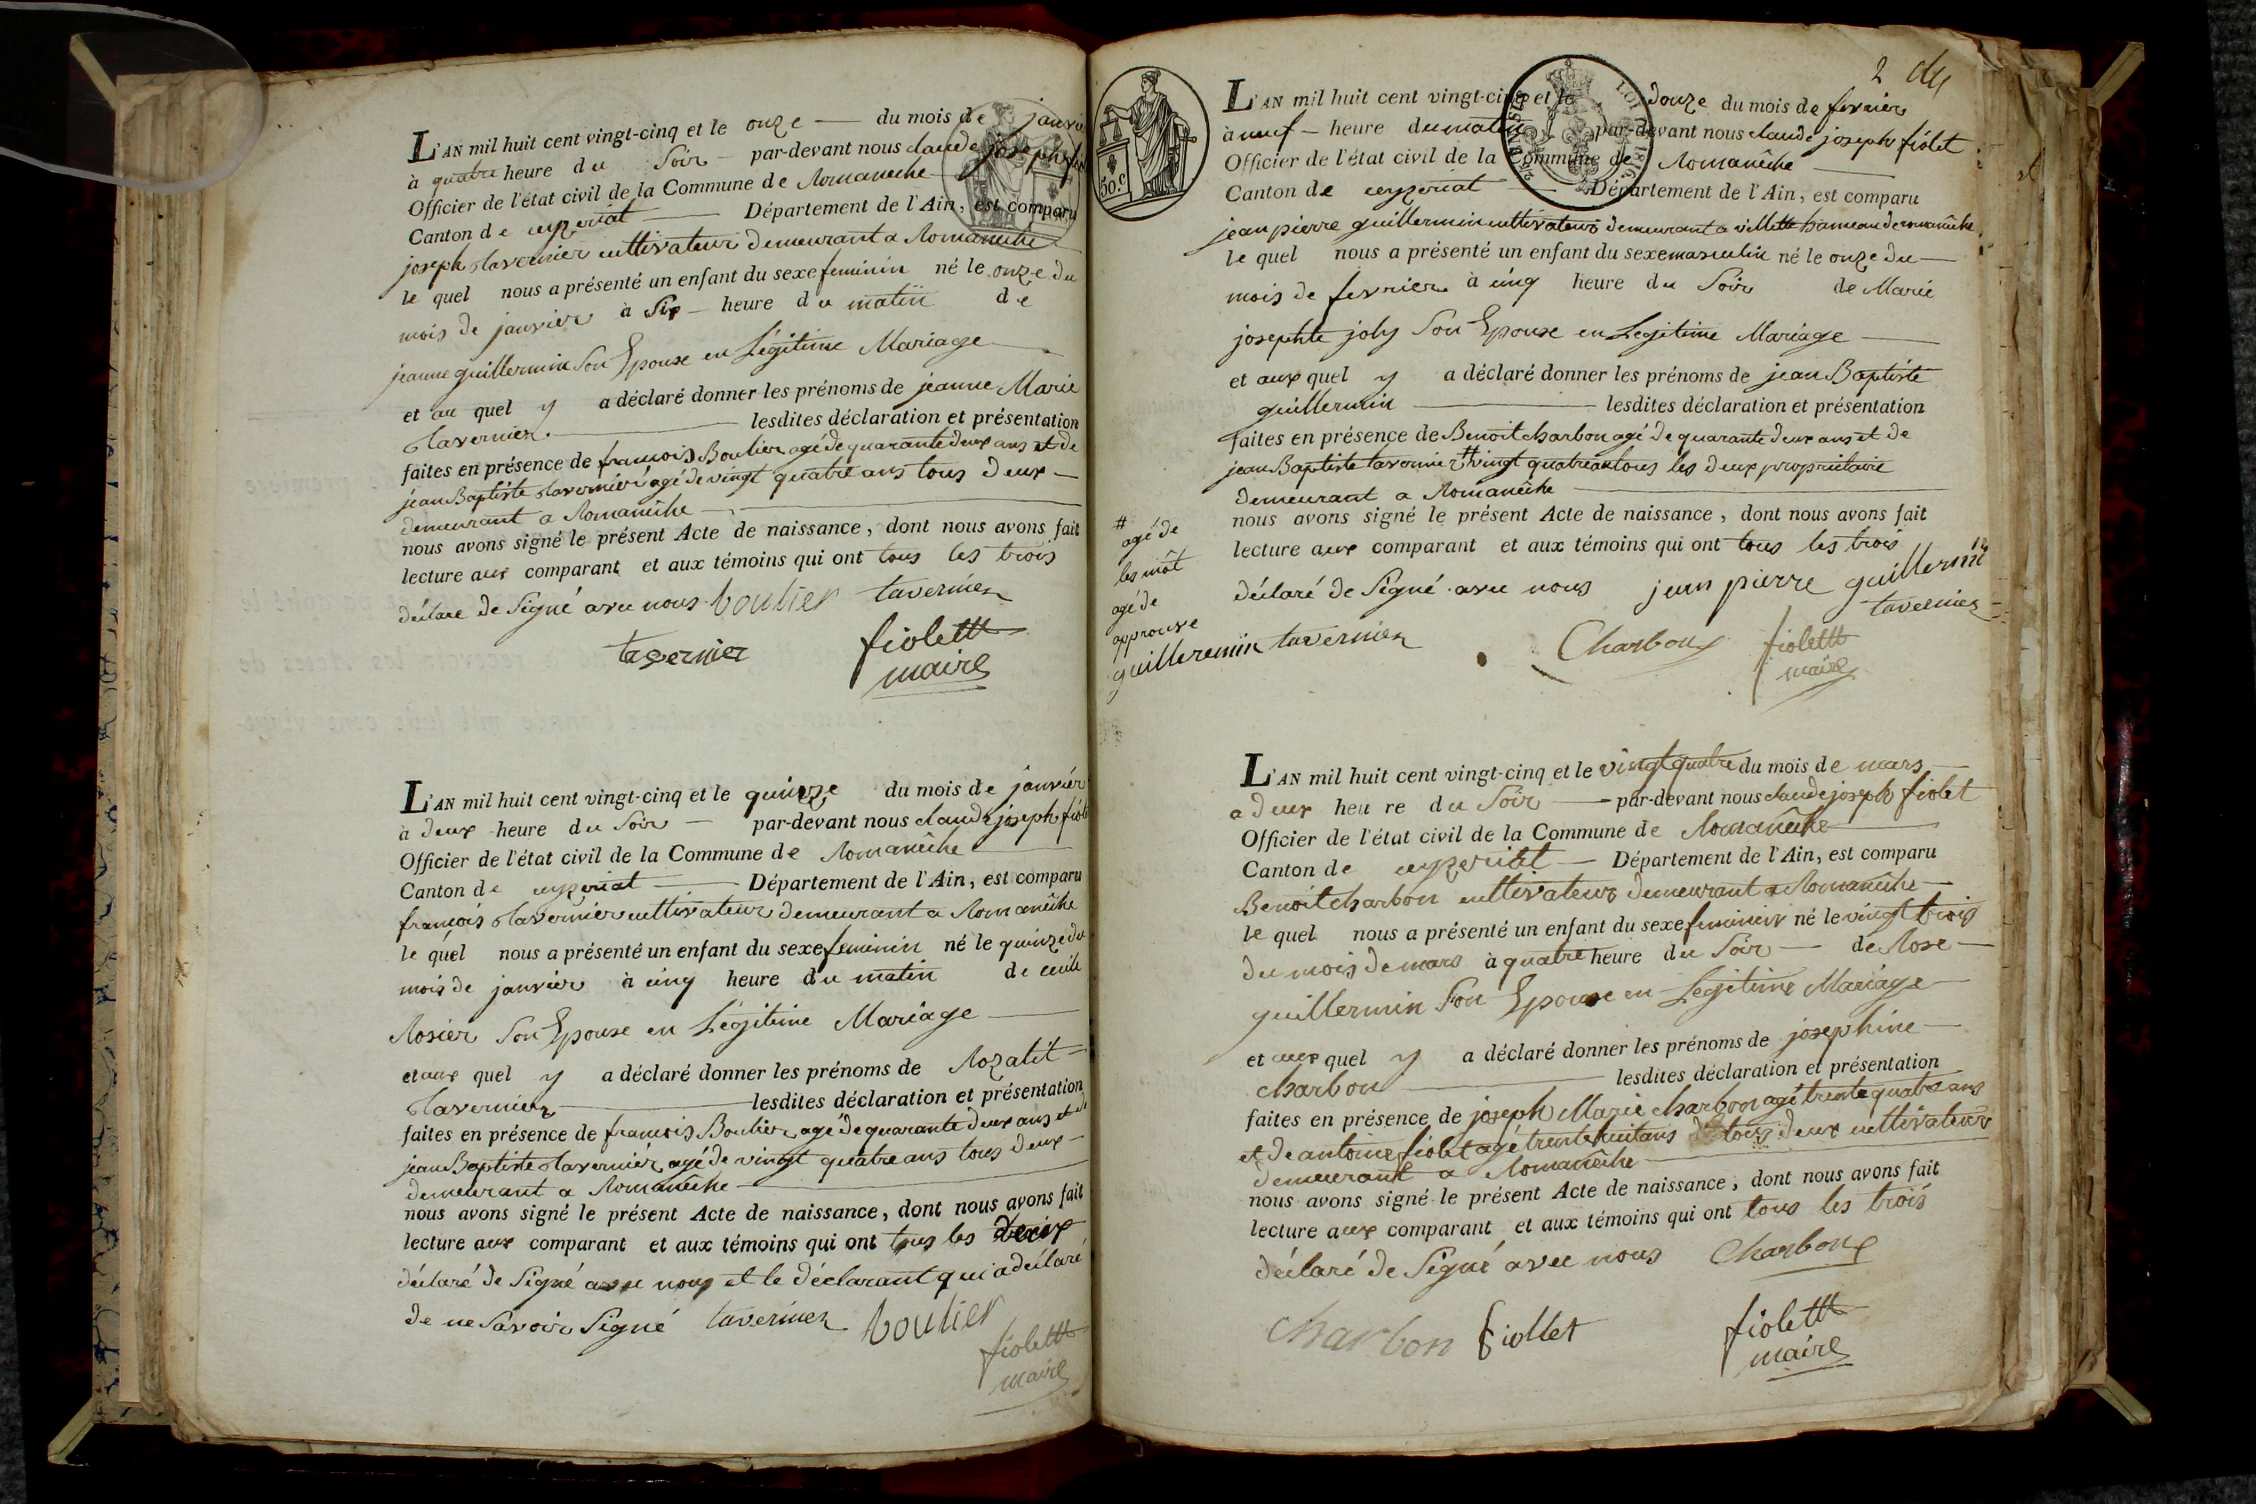 L'AN mil huit cent vingt-cinq et le onze du mois de janvi
à quatre heure du Soir par-devant nous claude joseph
Officier de l'état civil de la Commune de Romanêche
Canton de ceyzeriat Département de l'Ain, est comparu
joseph tavernier cultivateur demeurant a Romanêche
le quel nous a présenté un enfant du sexe feminin né le onze du
mois de janvier à Six heure du matin de
jeanne guillermin Son Epouse en Légitime Mariage
et au quel y a déclaré donner les prénoms de jeanne Marie
tavernier. lesdites déclaration et présentation
faites en présence de francois Boulier agé de quarante deux ans et de
jean Baptiste tavernier agé de vingt quatre ans tous deux
demeurant a Romanêche
nous avons signé le présent Acte de naissance, dont nous avons fait
lecture aux comparant et aux témoins qui ont tous les trois
déclare de Signé avec nous boulier tavernier
tavernier fiolet
maire
L'AN mil huit cent vingt-cinq et le quinze du mois de janviér
à deux heure du Soir par-devant nous claude joseph fiolet
Officier de l'état civil de la Commune de Romanêche
Canton de ceyzeriat Département de l'Ain, est comparu
françois tavernier cultivateur demeurant a Romanêche
le quel nous a présenté un enfant du sexe feminin né le quinze du
mois de janvier à cinq heure du matin de
Rosier Son Epouse en Légitime Mariage
et aux quel y a déclaré donner les prénoms de Rozalit
tavernier lesdites déclaration et présentation
faites en présence de francois Boulier agé de quarante deux ans et de
jean Baptiste tavernier agé de vingt quatre ans tous deux
demeurant a Romanêche
nous avons signé le présent Acte de naissance, dont nous avons fait
lecture aux comparant et aux témoins qui ont tous les deux
déclaré de Signé avec nous et le déclarant qui a déclaré
de ne Savoir Signé tavernier boulier
fiolet
maire
2
50 c.
L'AN mil huit cent vingt-cinq et le douze du mois de fevrier
à neuf heure du matin par-devant nous claude joseph fiolet
Officier de l'état civil de la Commune de Romanêche
Canton de ceyzeriat Département de l'Ain, est comparu
jean pierre guillermin cultivateur demeurant a villette hameau de romanêche
le quel nous a présenté un enfant du sexe masculin né le onze du
mois de fevrier à cinq heure du Soir de Marie
josephte joly Son Epouse en Légitime Mariage
et aux quel y a déclaré donner les prénoms de jean Baptiste
guillermin lesdites déclaration et présentation
faites en présence de Benoit charbon agé de quarante deux ans et de
jean Baptiste tavernier # vingt quatre ans tous les deux propriétaire
demeurant a Romanêche
nous avons signé le présent Acte de naissance, dont nous avons fait
lecture aux comparant et aux témoins qui ont tous les trois
déclaré de Signé avec nous jean pierre guillermin
tavernier
Charbon fiolet
maire
#
agé de
les môt
agé de
approuve
guillermin tavernier
L'AN mil huit cent vingt-cinq et le vingt quatre du mois de mars
a deux heure du Soir par-devant nous claude joseph fiolet
Officier de l'état civil de la Commune de Romanêche
Canton de ceyzeriat Département de l'Ain, est comparu
Benoit charbon cultivateur demeurant a Romanêche
le quel nous a présenté un enfant du sexe feminin né le vingt trois
du mois de mars à quatre heure du Soir de Rose
guillermin Son Epouse en Légitime Mariage
et aux quel y a déclaré donner les prénoms de josephine
charbon lesdites déclaration et présentation
faites en présence de joseph Marie charbon agé trente quatre ans
et de antoine fiolet agé trente huit ans tous deux cultivateur
demeurant a Romanêche
nous avons signé le présent Acte de naissance, dont nous avons fait
lecture aux comparant et aux témoins qui ont tous les trois
déclaré de Signé avec nous Charbon
charbon fiollet fiolet
maire